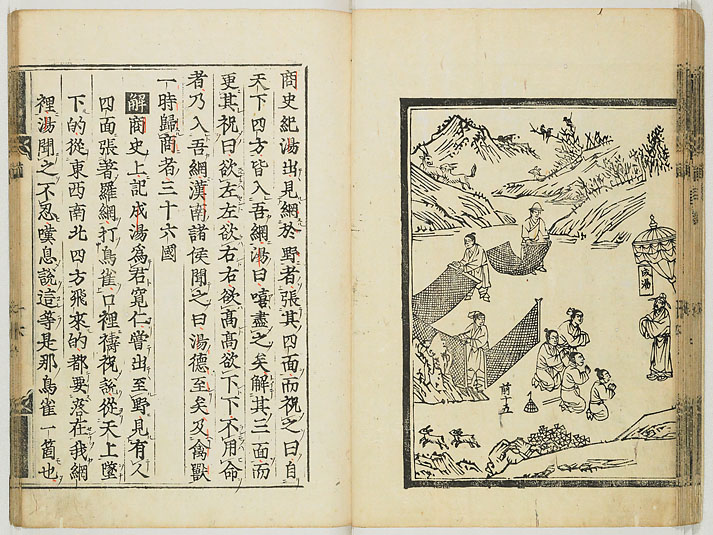 成湯
前十五
商史紀湯出見網於野者張其四面而祝之曰自
天下四方皆入吾網湯曰嘻盡之矣解其三面而
更其祝曰欲左左欲右右欲高高欲下下不用命
者乃入吾網漢南諸侯聞之曰湯德至矣及禽獸
一時歸商者三十六國
解商史上記成湯為君寬仁嘗出至野見有人
四面張著羅網打鳥雀口裡禱祝說從天上墜
下的從東西南北四方飛來的都要落在我網
裡湯聞之不忍嘆息說這等是那鳥雀一箇也